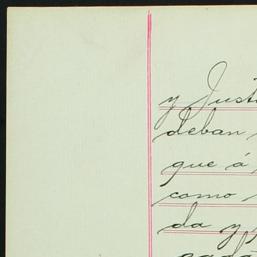 y Justi
deban
que á
como
da y